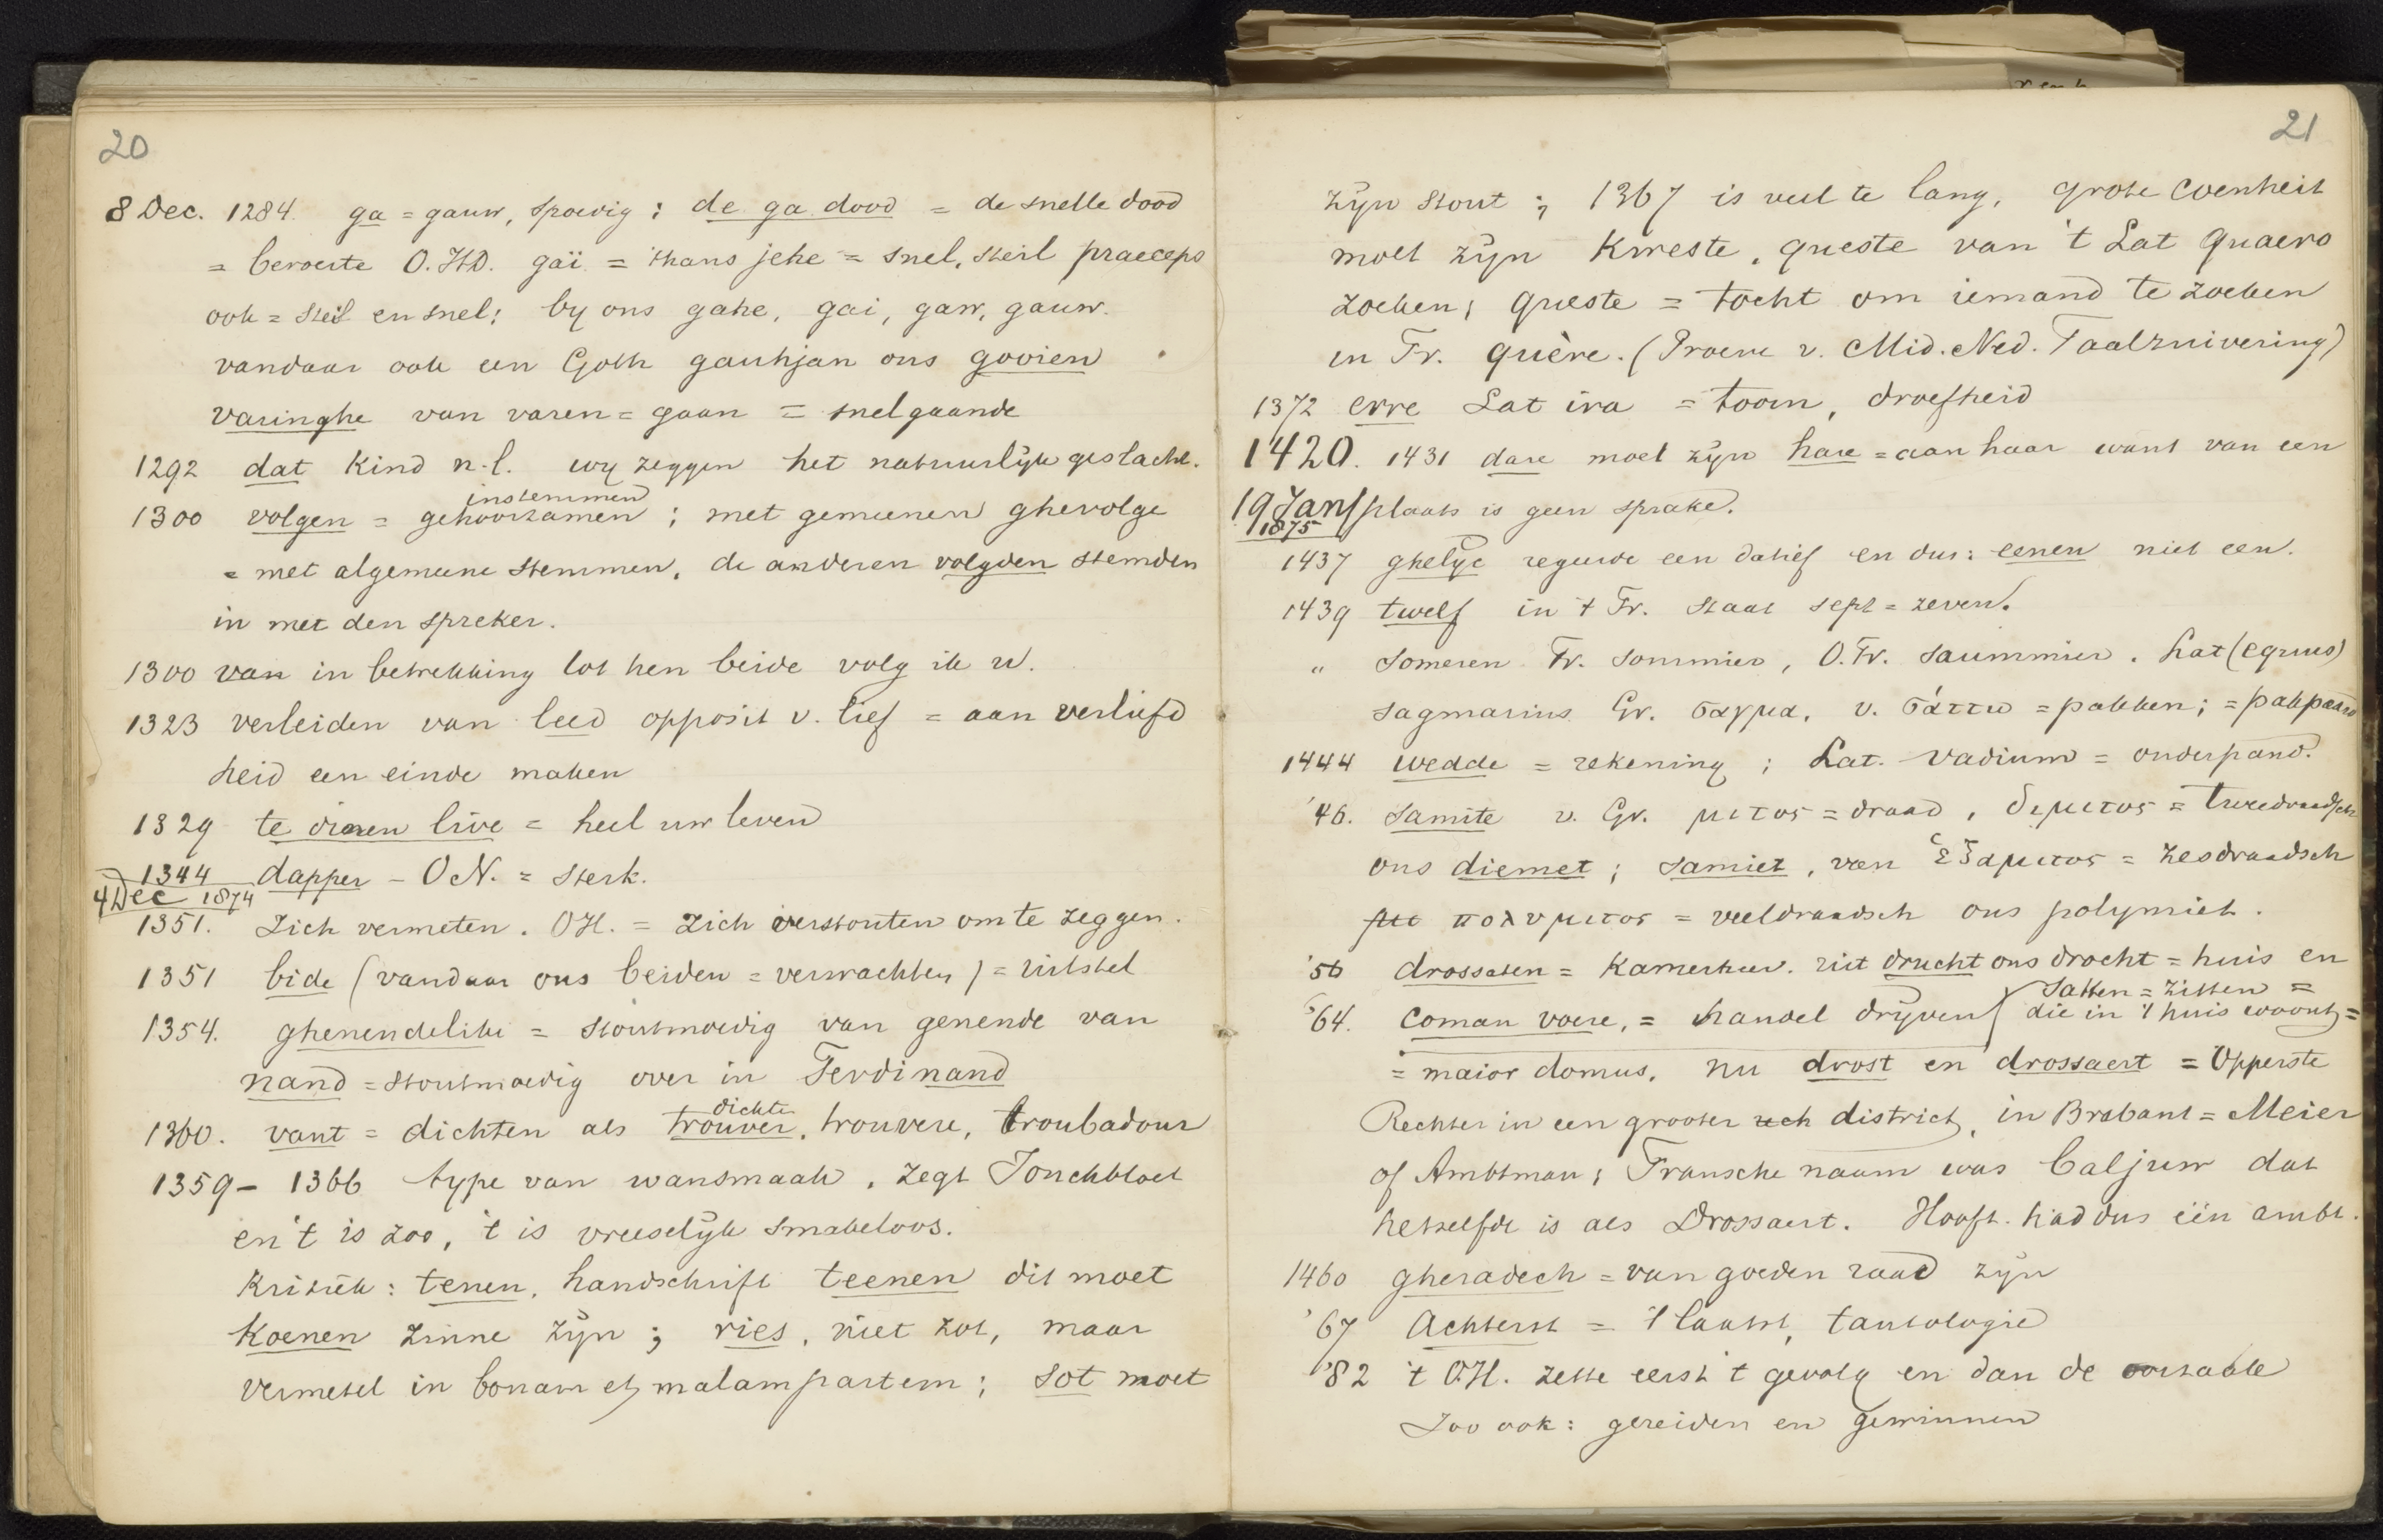 20
8 Dec. 1284. ga = gauw, spoedig; de ga dood = de snelle dood
= beroerte O.HD. gäi = thans jehe = snel, steil praeceps
ook = steil en snel; by ons gahe, gai, gaw, gauw.
vandaar ook een Goth gauhjan ons gooien
varinghe van varen = gaan = snelgaande
1292 dat Kind n.l. wy zeggen het natuurlijk geslacht.
instemmen
1300 volgen = gehoorzamen; met gemeenen ghevolge
= met algemeene stemmen, de anderen volgden stemden
in met den spreker.
1300 van in betrekking tot hen beide volg ik u.
1323 verleiden van leed opposit v. lief = aan verliefd
heid een einde maken
1329 te dinen live = heel uw leven
1344 dapper - O.N. = sterk.
4 Dec 1874
1351. Zich vermeten. OH. = zich verstouten om te zeggen.
1351 bide (vandaar ons beiden = verwachten) = uitstel
1354. ghenendelike = stoutmoedig van genende van
nand = stoutmoedig over in Ferdinand
dichten
1360. vant = dichten als trouver, trouvere, troubadour
1359 - 1366 type van wansmaak, zegt Jonckbloet
en 't is zoo, 't is vreeselijk smakeloos.
Kritiek: tenen, handschrift teenen dit moet
Koenen zinne zijn; ries, niet zot, maar
vermetel in bonam et malam partem; sot moet
21
zijn stout; 1367 is veel te lang, grote coenheit
moet zijn Kweste, queste van 't Lat quaero
zoeken; queste = tocht om iemand te zoeken
in Fr. quère. (Proeve v. Mid. Ned. Taalzuivering)
1372 erre Lat ira = toorn, droefheid
1420. 1431 dare moet zijn hare = aan haar want van een
19 Jan plaats is geen sprake.
1875
1437 ghelyc regeerde een datief en dus: eenen niet een.
1439 twelf in 't Fr. staat sept = zeven.
" Someren Fr. sommier, O.Fr. saummier. Lat (equus)
sagmarius Gr. σαγμα, v. σάττω = pakken; = pakpaard
1444 wedde = rekening; Lat. vadium = onderpand.
'46. Samite v. Gr. μιτος = draad, διμιτος = tweedraadsch
ons diemet; samiet, van ἑξαμιτος = zesdraadsch
πολυμιτος = veeldraadsch ons polymiet.
'56 drossaten = Kamerheer. uit drucht ons drocht = huis en
Satten = zitten =
'64. Coman voere, = handel drijven die in 't huis woont =
= maior domus, nu drost en drossaert = Opperste
Rechter in een grooter rech district, in Brabant = Meier
of Ambtman; Fransche naam was Baljuw dat
hetzelfde is als Drossaert. Hooft had dus één ambt.
1460 gheradech = van goeden raad zijn
'67 Achterst = 't laatst, tautologie
'82 't O.H. zette eerst 't gevolg en dan de oorzaak
Zoo ook: gereiden en gewinnen